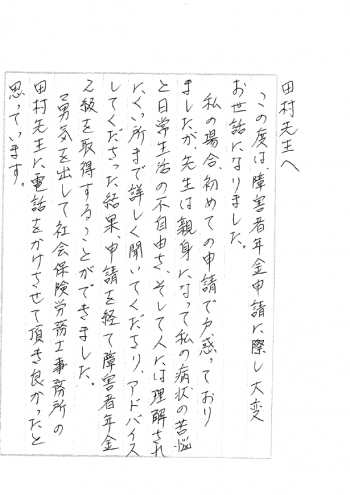 田村先生へ
この度は、障害者年金申請に際し大変
お世話になりました。
私の場合、初めての申請で戸惑っており
ましたが、先生は親身になって私の病状の苦悩
と日常生活の不自由さ、そして人には理解され
にくい所まで詳しく聞いてくださり、アドバイス
してくださった結果、申請を経て障害者年金
2級を取得することができました。
勇気を出して社会保険労務士事務所の
田村先生に電話をかけさせて頂き良かったと
思っています。